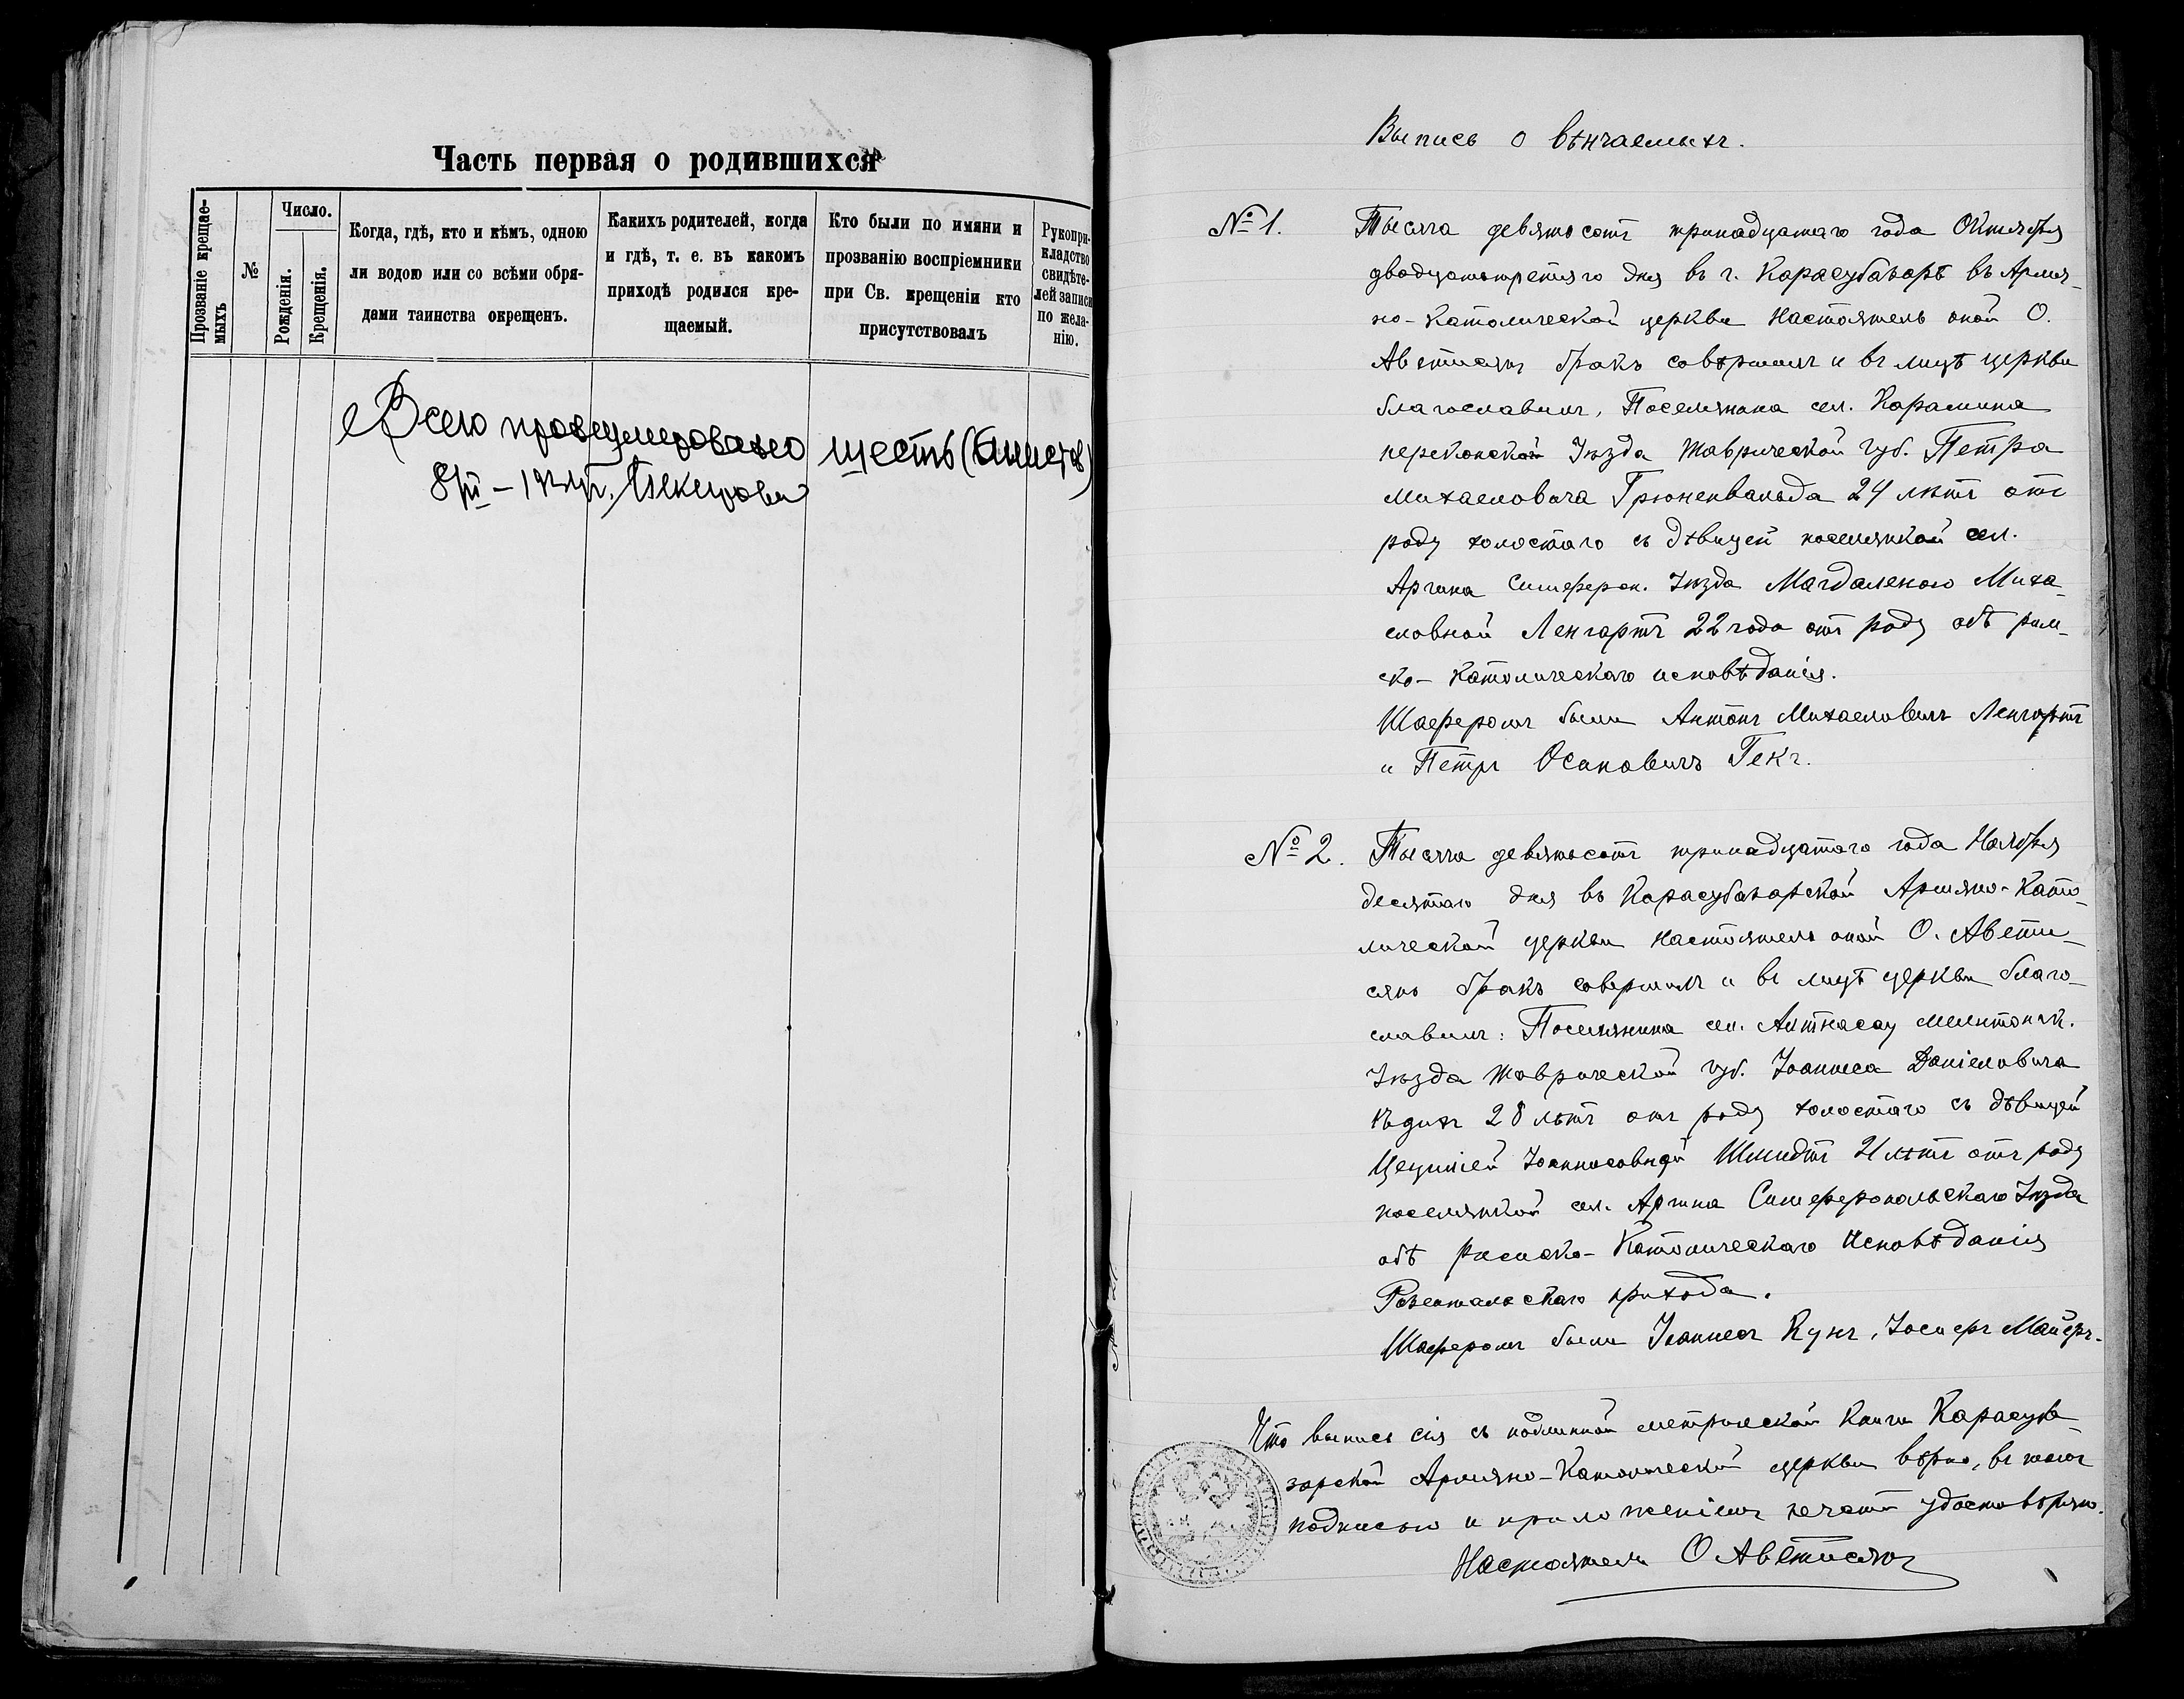 Часть первая о родившихся
Прозваніе крещае-
мыхъ
№
Число.
Рожденія.
Крещенія.
Когда, гдѣ, кто и кѣмъ, одною
ли водою или со всѣми обря-
дами таинства окрещенъ.
Какихъ родителей, когда
и гдѣ, т. е. въ какомъ
приходѣ родился кре-
щаемый.
Кто были по имяни и
прозванію воспріемники
при Св. крещеніи кто
присутствовалъ
Рукопри-
кладство
свидѣте-
лей записи
по жела-
нію.
Всего пронумеровано шесть (6 листов)
Выпись о вѣнчаемыхъ.
№ 1. Тысяча девятьсотъ тринадцатаго года Октября
двадцатьтретяго дня въ г. Карасубазарѣ въ Армя-
но-Католической церкви Настоятель оной О.
Аветисянъ бракъ совѣршилъ и въ лицѣ церкви
благославилъ, Поселянина сел. Карамина
перекопской Уѣзда Таврической Губ. Петра
Михаеловича Грюненвальда 24 лѣтъ отъ
роду холостаго съ дѣвицей поселянкой сел.
Аргина Симфероп. Уѣзда Магдаленою Миха-
еловной Ленгартъ 22 года отъ роду обѣ рим-
ско-Католическаго исповѣданія.
Шаферомъ были Антонъ Михаеловичъ Ленгартъ
и Петръ Осиповичъ Гекъ.
№ 2. Тысяча девятьсотъ тринадцатаго года Ноября
десятаго дня въ Карасубазарской Армяно-Като-
лической церкви Настоятель оной О. Авети-
сянъ бракъ совершилъ и въ лицѣ церкви благо-
славилъ: Поселянина сел.
Уѣзда Таврической Губ. Іоаннеса Даніеловича
28 лѣтъ отъ роду холостаго съ дѣвицей
Цециліей Іоаннесовной Шмидтъ 21 лѣтъ отъ роду
поселянкой сел. Аргина Симферопольскаго Уѣзда
обѣ Римско-Католическаго Исповѣданія
Розентальскаго прихода.
Шаферомъ были Іоаннесъ Кунъ, Іосифъ Майеръ.
Что выпись сія съ подлинной метрической Книги Карасуба-
зарской Армяно-Католической церкви вѣрно, въ томъ
подписью и приложеніемъ печати удостовѣряю.
Настоятель О Аветисянъ